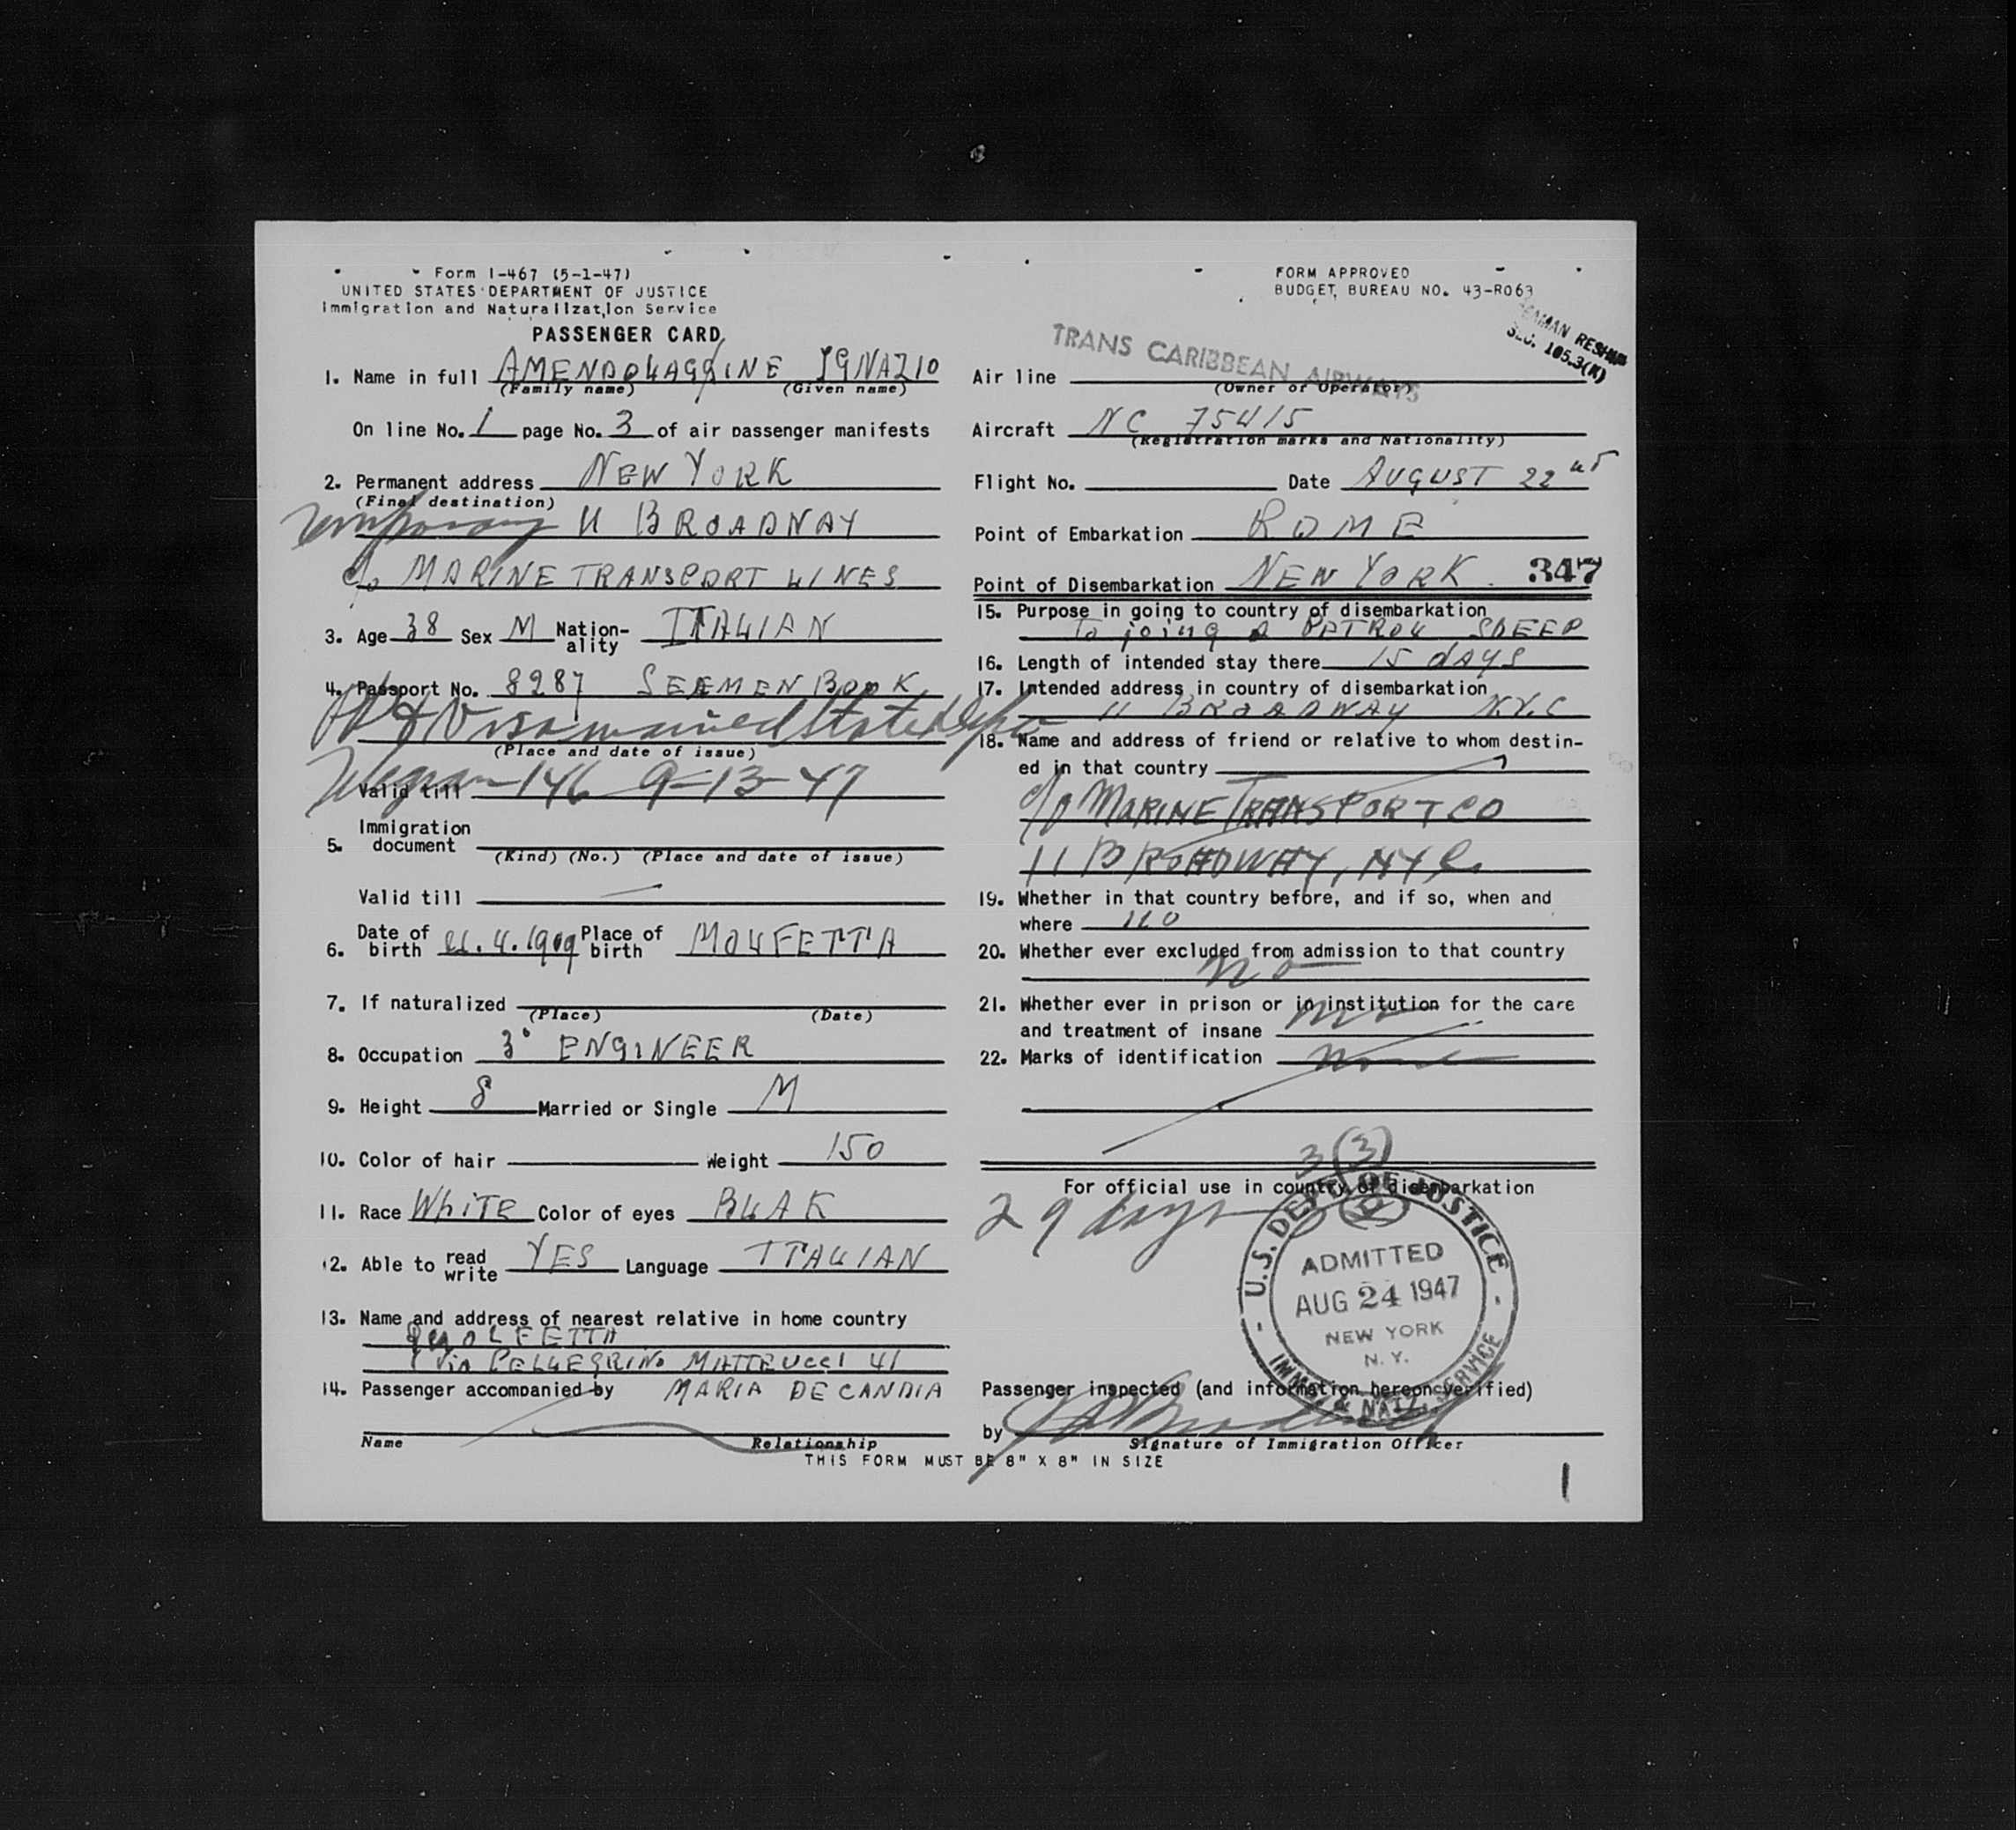 Form I-467 (5-1-47)
UNITED STATES DEPARTMENT OF JUSTICE
Immigration and Naturalization Service
PASSENGER CARD
1. Name in full AMENDOLAGGINE IGNAZIO
(Family name) (Given name)
On line No. 1 page No. 3 of air passenger manifests
2. Permanent address NEW YORK
(Final destination)
temporary 11 BROADWAY
c/o MARINE TRANSPORT LINES
3. Age 38 Sex M Nation-ality ITALIAN
4. Passport No. 8287 SEEMEN BOOK
PP & Visa waived State Dept
(Place and date of issue)
Telegram 146 9-13-47
Valid till
5. Immigration document
(Kind) (No.) (Place and date of issue)
Valid till
6. Date of birth 4.1909 Place of birth MOLFETTA
7. If naturalized
(Place) (Date)
8. Occupation 3° ENGINEER
9. Height 8 Married or Single M
10. Color of hair Weight 150
11. Race WhiTE Color of eyes BLAK
12. Able to read write YES Language ITALIAN
13. Name and address of nearest relative in home country
Via PELLEGRINO MATTEUCCI 41
14. Passenger accompanied by MARIA DE CANDIA
Name Relationship
THIS FORM MUST BE 8" X 8" IN SIZE
FORM APPROVED
BUDGET BUREAU NO. 43-R063
SEAMAN RESHIP
SEC. 105.3(K)
TRANS CARIBBEAN AIRWAYS
Air line
(Owner or Operator)
Aircraft NC 75415
(Registration marks and Nationality)
Flight No. Date AUGUST 22
Point of Embarkation ROME
Point of Disembarkation NEW YORK 347
15. Purpose in going to country of disembarkation
To joing a PETROL SHEEP
16. Length of intended stay there 15 dAYS
17. Intended address in country of disembarkation
11 BROADWAY N.Y.C
18. Name and address of friend or relative to whom destin-
ed in that country
c/o MARINE TRANSPORT CO
11 BROADWAY, NYC.
19. Whether in that country before, and if so, when and
where no
20. Whether ever excluded from admission to that country
no
21. Whether ever in prison or in institution for the care
and treatment of insane no
22. Marks of identification none
3(3)
For official use in country of disembarkation
29 days
U.S. DEPT. OF JUSTICE
ADMITTED
AUG 24 1947
NEW YORK
N. Y.
IMMIG. & NATZ. SERVICE
Passenger inspected (and information hereon verified)
by
Signature of Immigration Officer
1